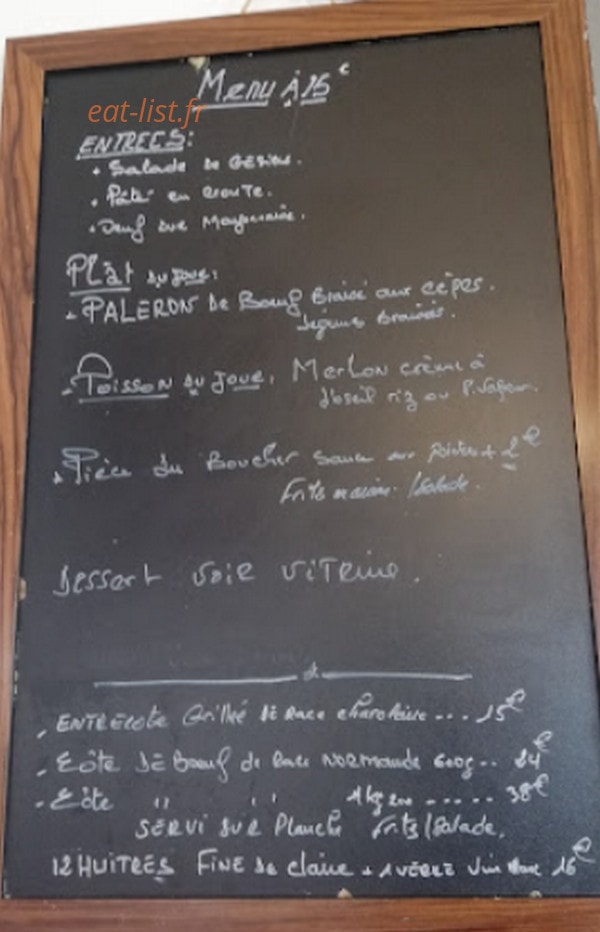 Menu À 15€
eat-list.fr
ENTREES:
+ Salade de Gésiers.
+ Pâté en croute.
+ Oeuf dur Mayonnaise.
Plât du jour:
- PALERON de Boeuf Braisé aux cèpes.
légumes braisés.
- Poisson du jour, Merlan crème à
l'oseil riz ou P. Vapeur.
+ Pièce du Boucher Sauce aux + 2€
Frits maison /Salade.
Dessert voir vitrine.
- ENTRECOTE Grillé de Race charolaise --- 15€
- Côte DE Boeuf de Race Normande 600g -- 24€
- Côte " " 1kg200 ----- 38€
SERVI SUR Planche Frits/Salade.
12 HUITRES FINE de claire + 1 VERRE Vin blanc 16€